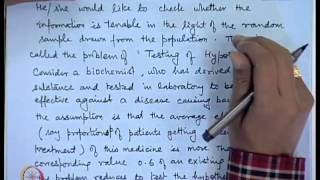 He/she would like to check whether the
information is tenable in the light of the random
sample drawn from the population.
called the problem of 'Testing of Hypo
Consider a biochemist, who has derived
substance and tested in laboratory to be
effective against a disease causing ba
the assumption is that the average e
(say proportion of patients getting
treatment) of this medicine is more tha
corresponding value 0.6 of an existing
problem reduces to test the hypothe